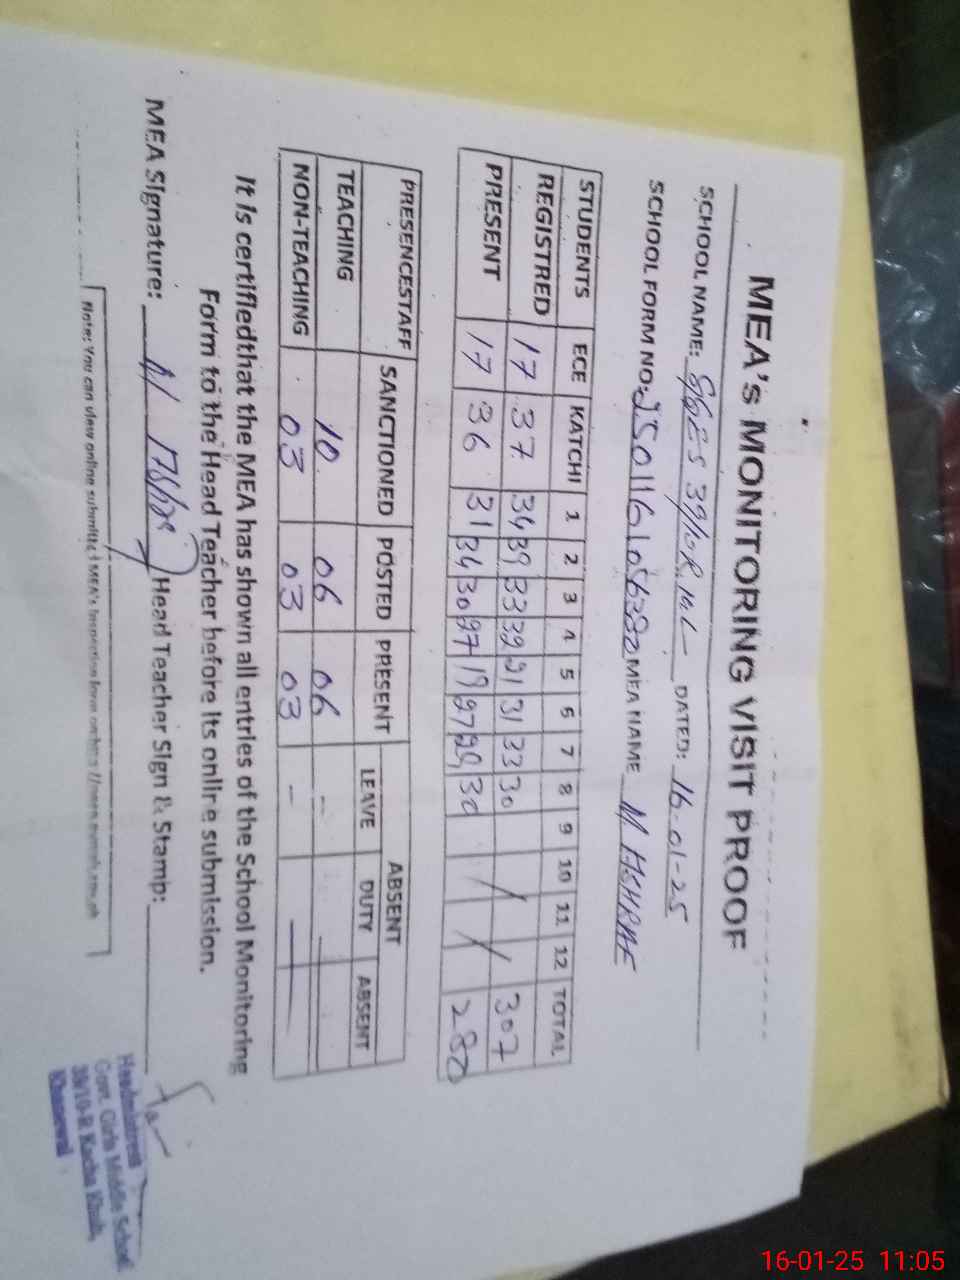 MEA's MONITORING VISIT PROOF
SCHOOL NAME: GGES 39/10R, M.L DATED: 16-01-25
SCHOOL FORM NO: MEA NAME M ASHRAF
STUDENTS ECE KATCHI 1 2 3 4 5 6 7 8 9 10 11 12 TOTAL
REGISTRED 17 37 34 39 33 32 21 31 33 30 307
PRESENT 17 36 31 34 30 27 19 27 29 30 280
PRESENCESTAFF SANCTIONED POSTED PRESENT ABSENT
LEAVE DUTY ABSENT
TEACHING 10 06 06 -
NON-TEACHING 03 03 03 -
It is certifiedthat the MEA has shown all entries of the School Monitoring
Form to the Head Teacher before its online submission.
MEA Signature: Head Teacher Sign & Stamp:
Headmistress
Govt. Girls Middle School
39/10-R Kacha Khuh,
Khanewal
Note: You can view online submitted MEA's Inspection form on
16-01-25 11:05